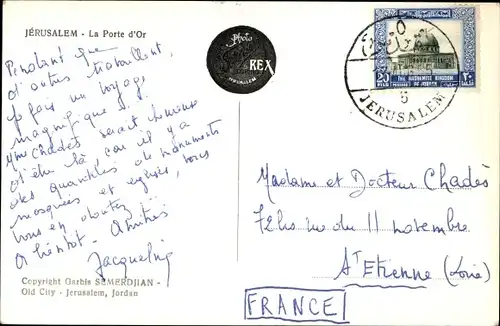 JÉRUSALEM - La Porte d'Or
Pendant que
d'autres travaillent,
je fais un voyage
magnifique
Mme Chadès serait heureuse
d'être là, car il y a
des quantités de monuments
mosquées et églises, vous
vous en doutez
A bientôt - Amitiés
Jacqueline
Copyright Garbis SEMERDJIAN -
Old City - Jerusalem, Jordan
Photo
REX
JERUSALEM
THE HASHEMITE KINGDOM
OF JORDAN
20
FILS
٢٠
JERUSALEM
Madame et Docteur Chadès
rue du 11 novembre
St Etienne (Loire)
FRANCE